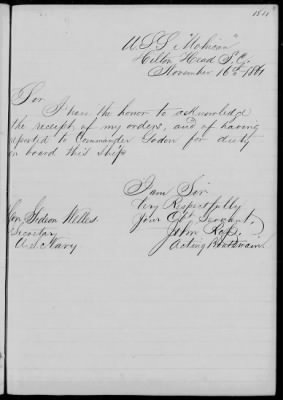 U.S.S. "Mohican"
Hilton Head S.C.
November 16th 1861
Sir
I have the honor to acknowledge
the receipt of my orders, and of having
reported to Commander Godon for duty
on board this ship
I am Sir
Very Respectfully
Your Obt Servant,
John
Acting Boatswain
Hon. Gideon Welles
Secretary
U.S. Navy